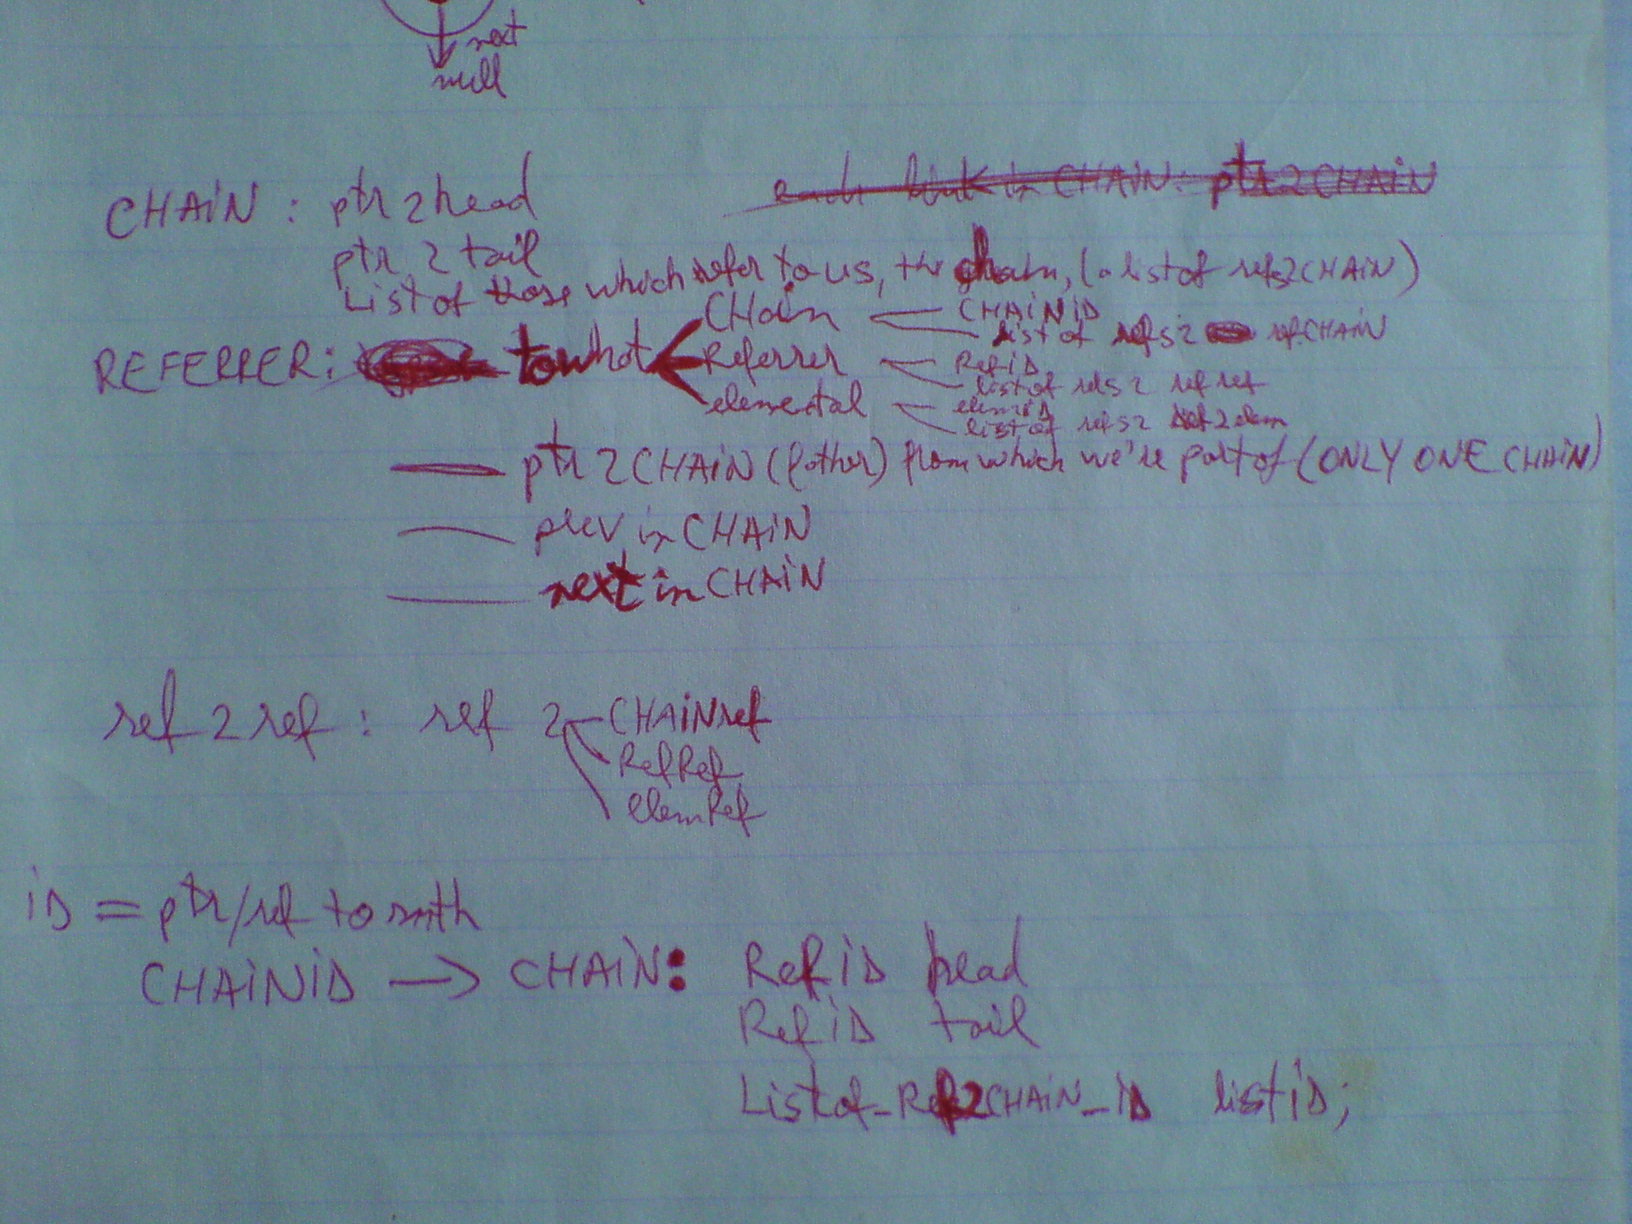 next
null
each link in CHAIN: ptr2CHAIN
CHAIN: ptr 2 head
ptr 2 tail
List of those which refer to us, the chain, (a list of refs2CHAIN)
REFERRER: to what
CHain
CHAINiD
list of refs2 refCHAIN
Referrer
RefiD
list of refs2 ref ref
elemental
elemiD
list of refs2 ref2elem
ptr 2 CHAIN (father) from which we're part of (ONLY ONE CHAIN)
prev in CHAIN
next in CHAIN
ref 2 ref: ref 2
CHAINref
RefRef
elemRef
iD = ptr/ref to smth
CHAINiD → CHAIN: RefiD head
RefiD tail
Listof_Ref2CHAIN_iD listiD;